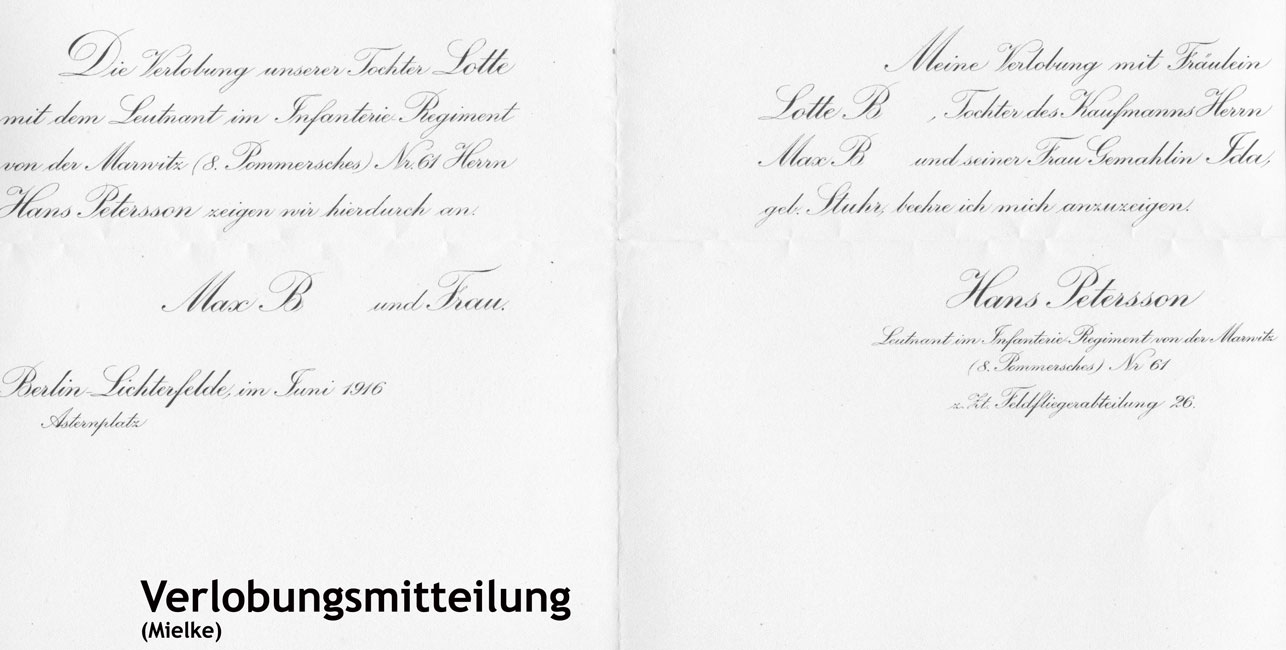 Die Verlobung unserer Tochter Lotte
mit dem Leutnant im Infanterie-Regiment
von der Marwitz (8. Pommersches) Nr. 61 Herrn
Hans Petersson zeigen wir hierdurch an.
Max B und Frau.
Berlin-Lichterfelde, im Juni 1916
Asternplatz
Meine Verlobung mit Fräulein
Lotte B , Tochter des Kaufmanns Herrn
Max B und seiner Frau Gemahlin Ida,
geb. Stuhr, beehre ich mich anzuzeigen.
Hans Petersson
Leutnant im Infanterie-Regiment von der Marwitz
(8. Pommersches) Nr 61
z. Zt. Feldfliegerabteilung 26.
Verlobungsmitteilung
(Mielke)